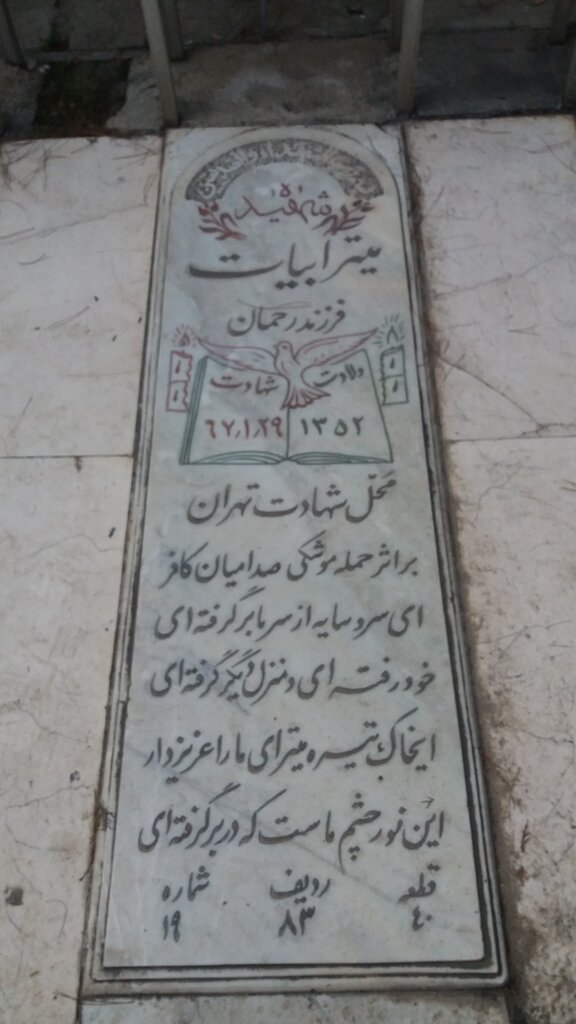 شهیده
میترا بیات
فرزند رحمان
ولادت شهادت
۱۳۵۲ ۶۷/۱/۲۹
محل شهادت تهران
بر اثر حمله موشکی صدامیان کافر
ای سرو سایه از سر ما بر گرفته ای
خود رفته ای و منزل دیگر گرفته ای
ایخاک تیره میترای ما را عزیز دار
این نور چشم ماست که در بر گرفته ای
قطعه ردیف شماره
۴۰ ۸۳ ۱۹